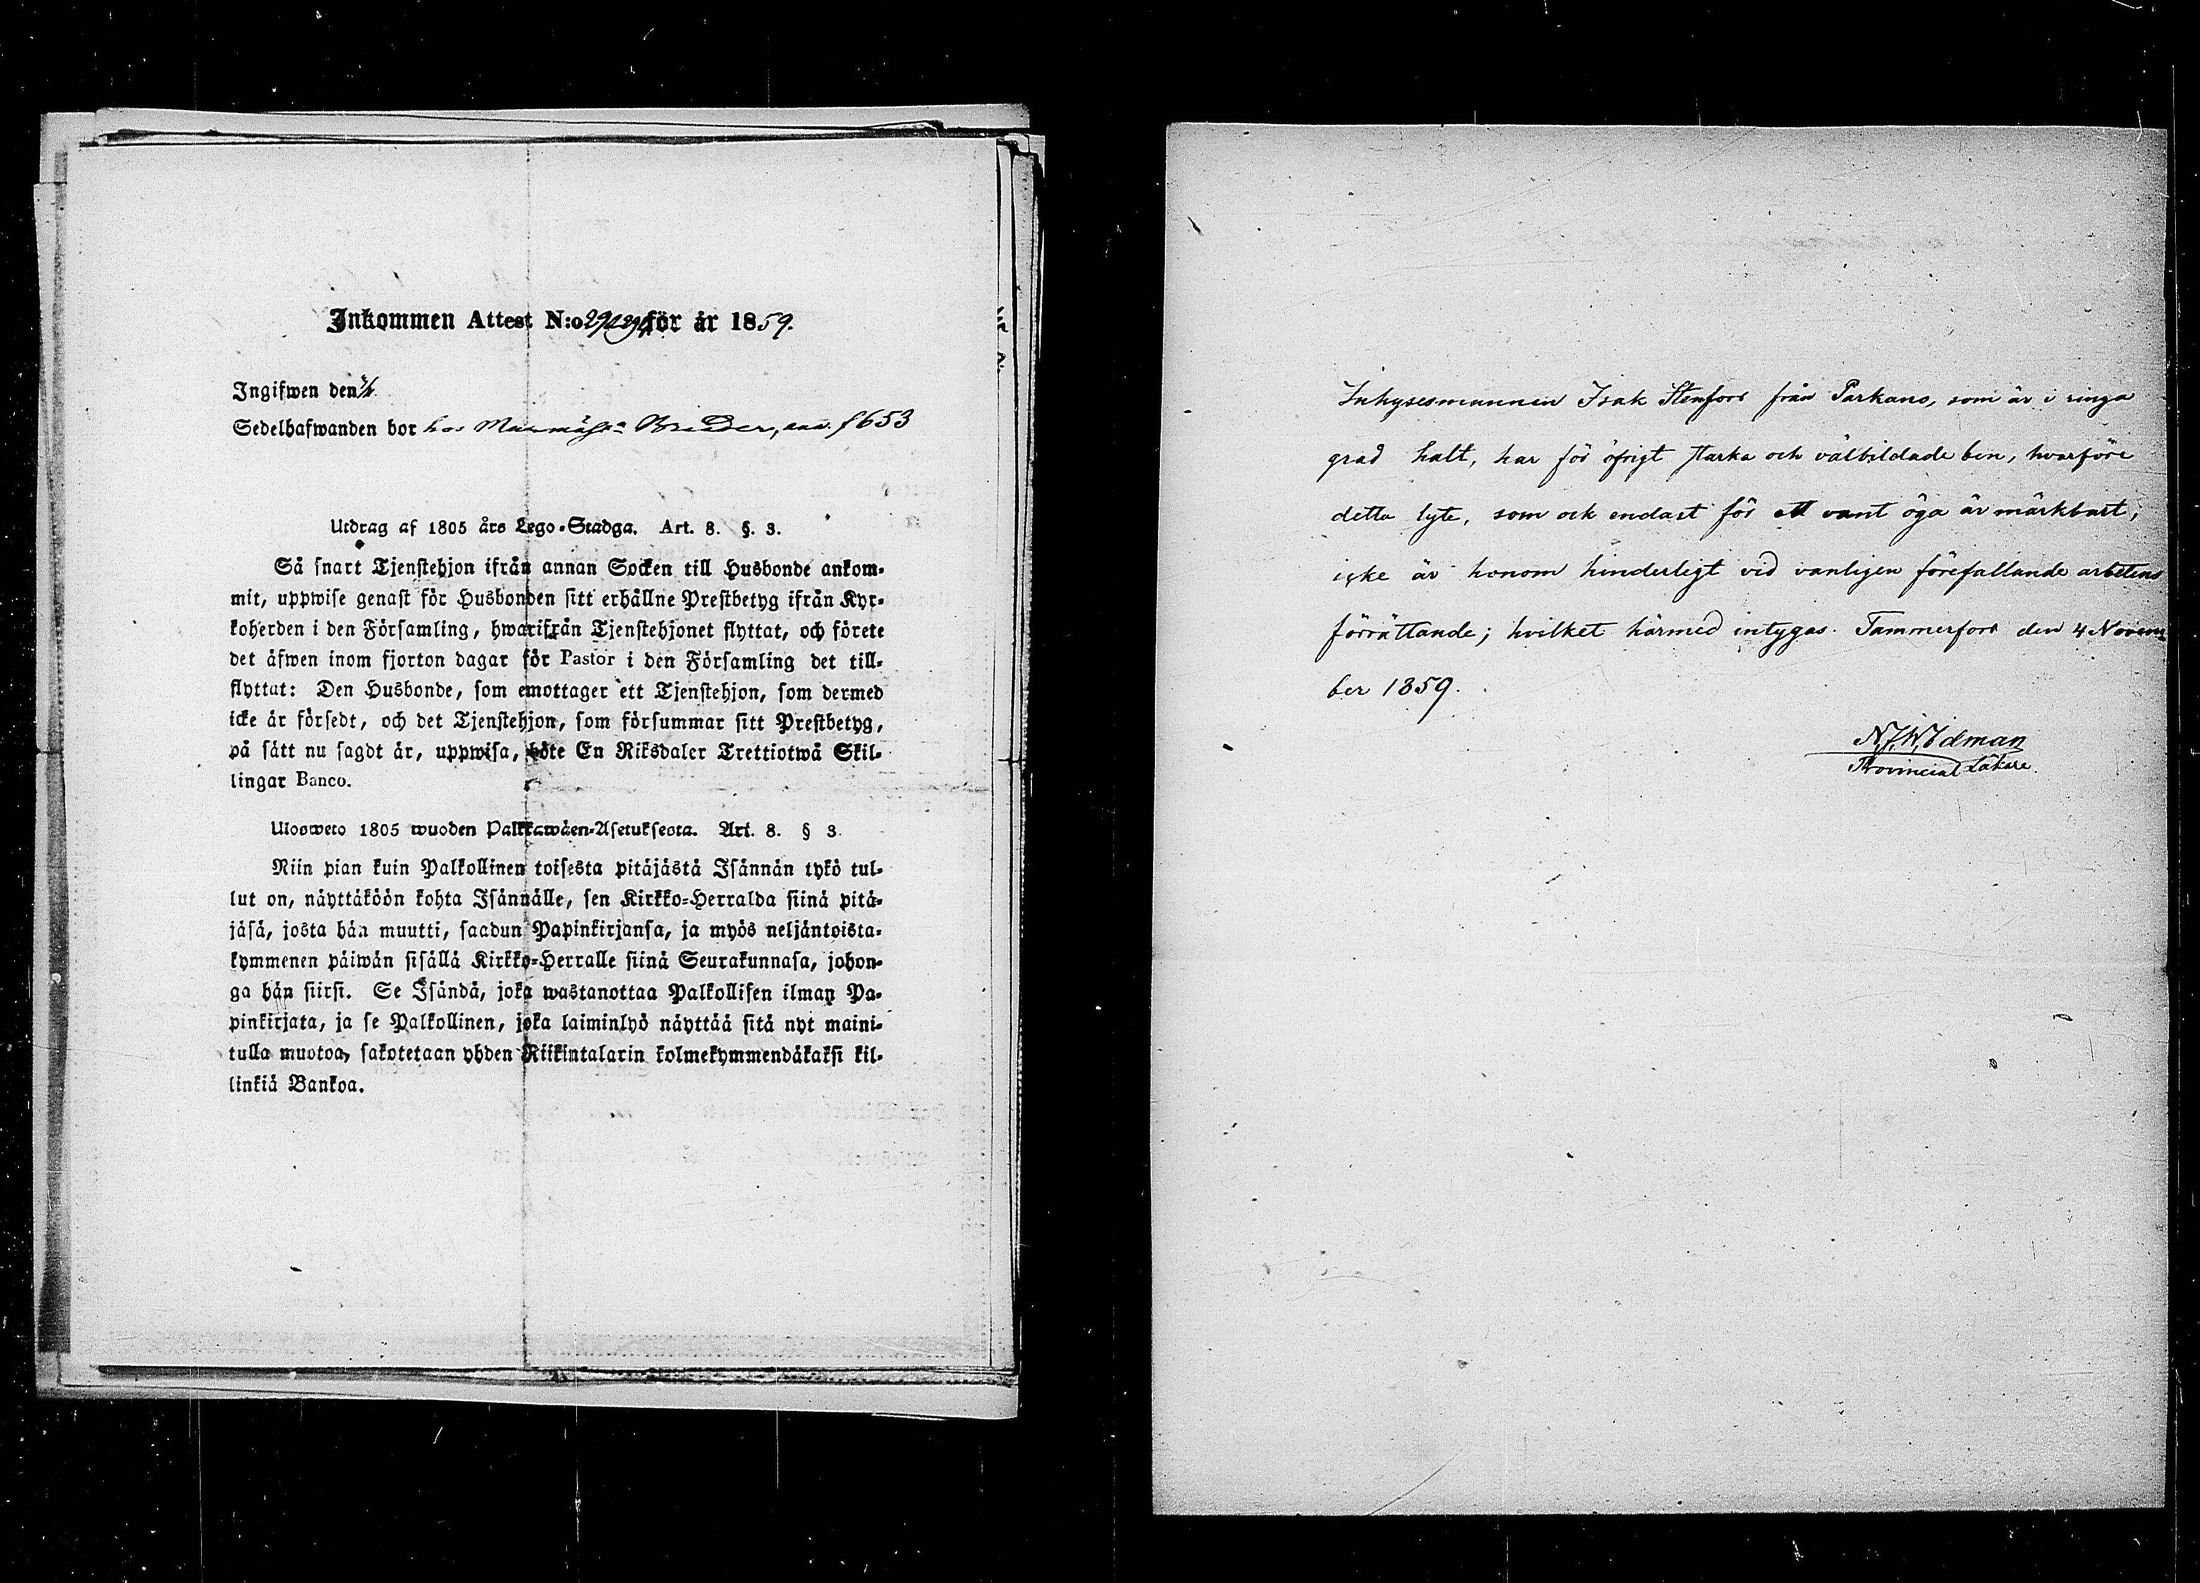 Inkommen Attest N:o för år 1859.
Ingifwen den
Sedelhafwanden bor hos
Utdrag af 1805 års Lego-Stadga. Art. 8. §. 3.
Så snart Tjenstehjon ifrån annan Socken till Husbonde ankom-
mit, uppwise genast för Husbonden sitt erhållne Prestbetyg ifrån Kyr-
koherden i den Församling, hwarifrån Tjenstehjonet flyttat, och förete
det äfwen inom fjorton dagar för Pastor i den Församling det till-
flyttat: Den Husbonde, som emottager ett Tjenstehjon, som dermed
icke är försedt, och det Tjenstehjon, som försummar sitt Prestbetyg,
på sätt nu sagdt är, uppwisa, böte En Riksdaler Trettiotwå Skil-
lingar Banco.
Ulosweto 1805 wuoden Palkkawäen-Asetuksesta. Art. 8. § 3.
Niin pian kuin Palkollinen toisesta pitäjästä Isännän tykö tul-
lut on, näyttäköön kohta Isännälle, sen Kirkko-Herralda siinä pitä-
jäsä, josta hän muutti, saadun Papinkirjansa, ja myös neljäntoista-
kymmenen päiwän sisällä Kirkko-Herralle siinä Seurakunnasa, johon-
ga hän siirsi. Se Isändä, joka wastanottaa Palkollisen ilman Pa-
pinkirjata, ja se Palkollinen, joka laiminlyö näyttää sitä nyt maini-
tulla muotoa, sakotetaan yhden Riikintalarin kolmekymmendäkaksi kil-
linkiä Bankoa.
Inhysesmannen Isak Stenfors från Parkano, som är i ringa
grad halt, har för öfrigt starka och välbildade ben, hvarföre
detta lyte, som ock endast för ett vant öga är märkbart,
icke är honom hinderligt vid vanligen förefallande arbetens
förrättande; hvilket härmed intygas. Tammerfors den 4 Novem-
ber 1859.
N. J. W. Idman
Provincial Läkare.